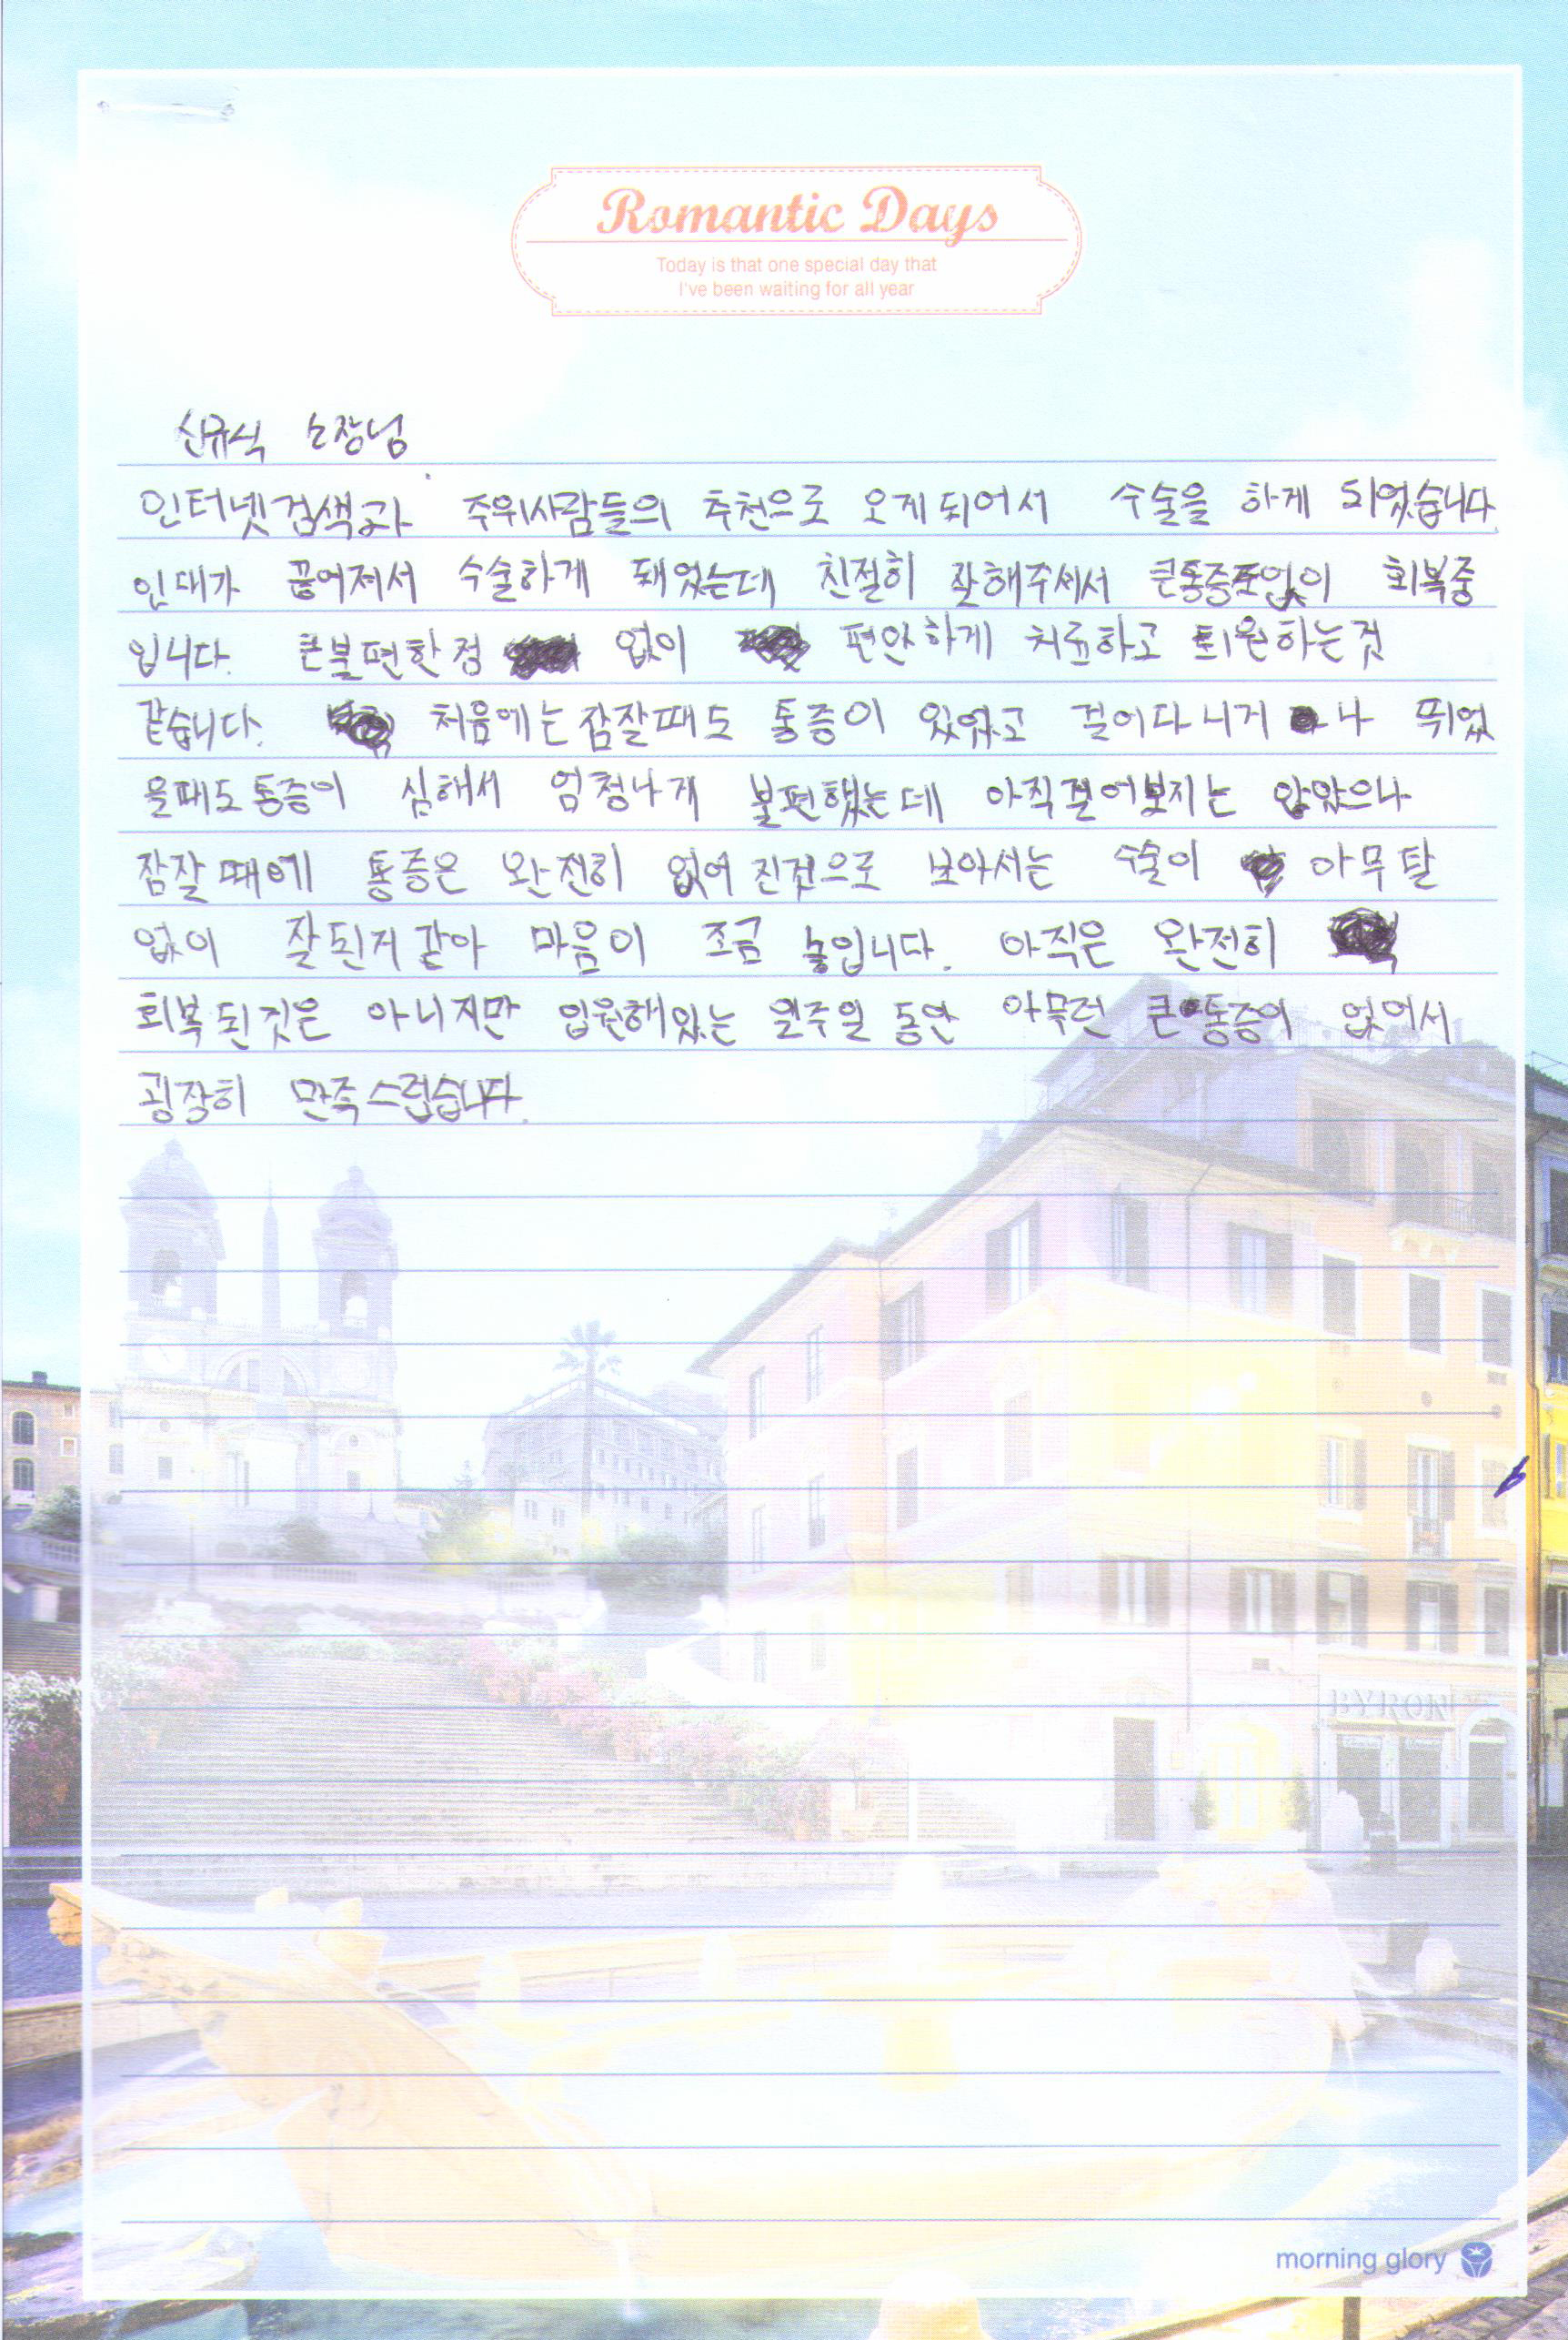 Romantic Days
Today is that one special day that
I've been waiting for all year
신규식 소장님
인터넷검색과 주위사람들의 추천으로 오게되어서 수술을 하게 되었습니다.
인대가 끊어져서 수술하게 돼었는데 친절히 잘해주셔서 큰통증도없이 회복중
입니다. 큰불편한점 없이 편안하게 치료하고 퇴원하는것
같습니다. 처음에는잠잘때도 통증이 있었고 걸어다니거나 뛰었
을때도통증이 심해서 엄청나게 불편했는데 아직걸어보지는 않았으나
잠잘때에 통증은 완전히 없어진것으로 보아서는 수술이 아무탈
없이 잘된거같아 마음이 조금 놓입니다. 아직은 완전히
회복된것은 아니지만 입원해있는 일주일 동안 아무런 큰통증이 없어서
굉장히 만족스럽습니다.
BYRON
morning glory